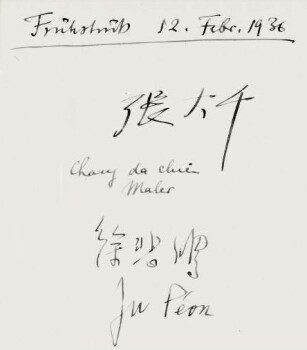 Frühstück 12. Febr. 1936
張大千
Chang da chien
Maler
徐悲鴻
Ju Péon